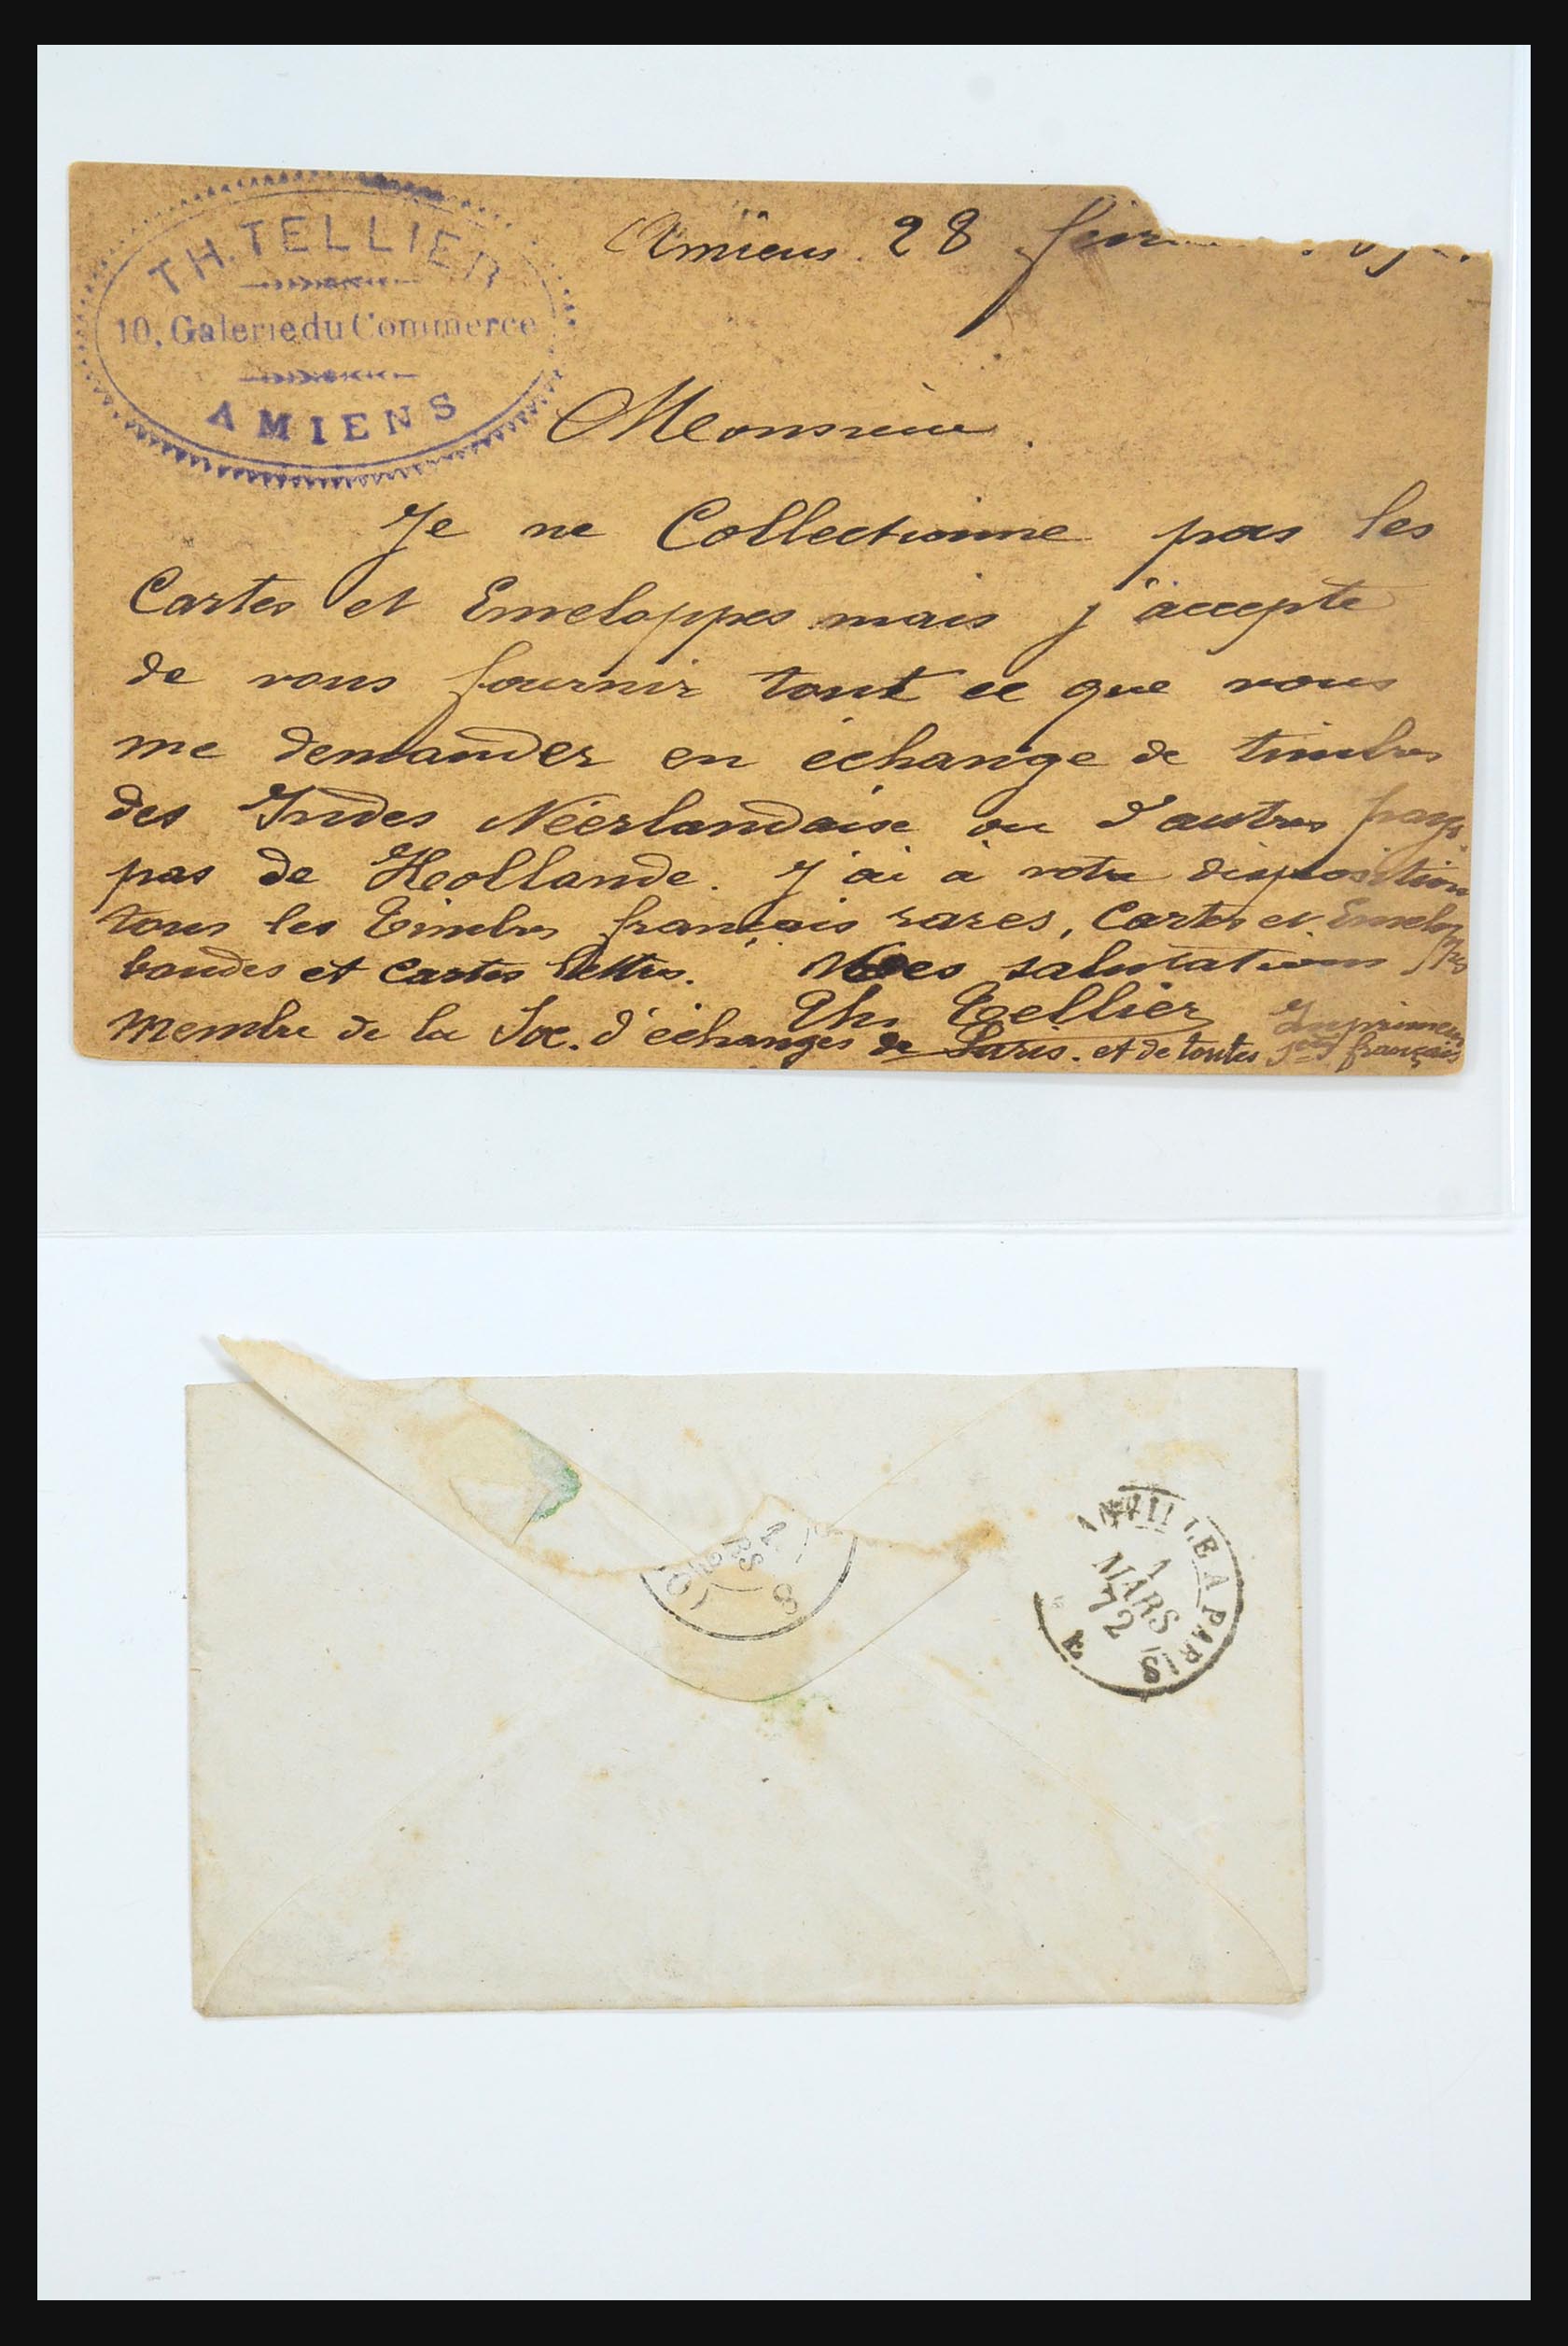 TH. TELLIER
10, Galerie du Commerce
AMIENS
Amiens. 28
Monsieur.
Je ne Collectionne pas les
Cartes et Enveloppes mais j'accepte
de vous fournir tout ce que vous
me demander en échange de timbres
des Indes Néerlandaise ou d'autres pays.
pas de Hollande. J'ai à votre disposition
tous les timbres français rares, Cartes et Enveloppes
bandes et Cartes lettres. Mes salutations
Th. Tellier
Membre de la Soc. d'échanges de Paris. et de toutes Stés français
Imprimeur
LEA PARIS
1
MARS
72
8
RS